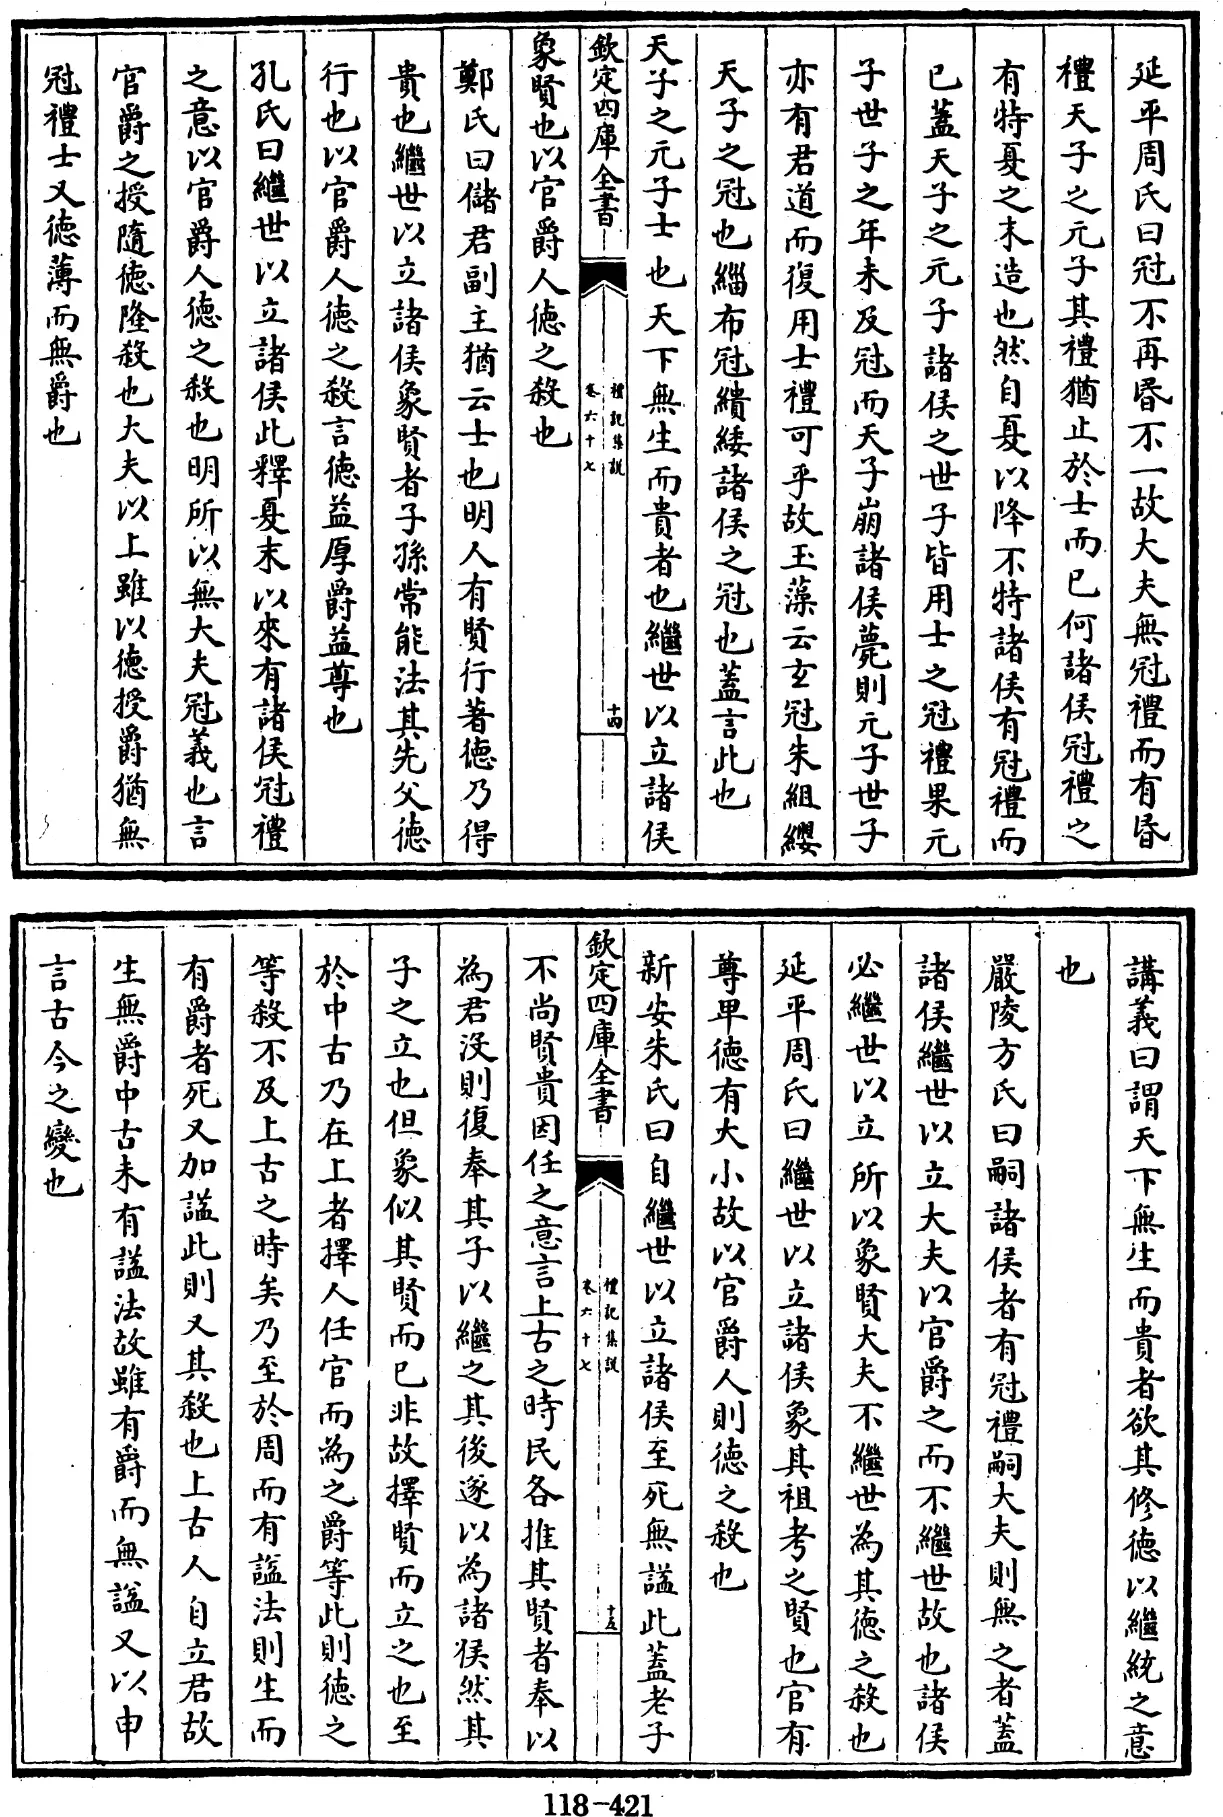 延平周氏曰冠不再昏不一故大夫無冠禮而有昏
禮天子之元子其禮猶止於士而已何諸侯冠禮之
有特夏之末造也然自夏以降不特諸侯有冠禮而
已蓋天子之元子諸侯之世子皆用士之冠禮果元
子世子之年未及冠而天子崩諸侯薨則元子世子
亦有君道而復用士禮可乎故玉藻云玄冠朱組纓
天子之冠也緇布冠繢緌諸侯之冠也蓋言此也
天子之元子士也天下無生而貴者也繼世以立諸侯
欽定四庫全書
禮記集說
卷六十七
十四
象賢也以官爵人德之殺也
鄭氏曰儲君副主猶云士也明人有賢行著德乃得
貴也繼世以立諸侯象賢者子孫常能法其先父德
行也以官爵人德之殺言德益厚爵益尊也
孔氏曰繼世以立諸侯此釋夏末以來有諸侯冠禮
之意以官爵人德之殺也明所以無大夫冠義也言
官爵之授隨德隆殺也大夫以上雖以德授爵猶無
冠禮士又德薄而無爵也
講義曰謂天下無生而貴者欲其修德以繼統之意
也
嚴陵方氏曰嗣諸侯者有冠禮嗣大夫則無之者蓋
諸侯繼世以立大夫以官爵之而不繼世故也諸侯
必繼世以立所以象賢大夫不繼世為其德之殺也
延平周氏曰繼世以立諸侯象其祖考之賢也官有
尊卑德有大小故以官爵人則德之殺也
新安朱氏曰自繼世以立諸侯至死無諡此蓋老子
欽定四庫全書
禮記集說
卷六十七
十五
不尚賢貴因任之意言上古之時民各推其賢者奉以
為君沒則復奉其子以繼之其後遂以為諸侯然其
子之立也但象似其賢而已非故擇賢而立之也至
於中古乃在上者擇人任官而為之爵等此則德之
等殺不及上古之時矣乃至於周而有諡法則生而
有爵者死又加諡此則又其殺也上古人自立君故
生無爵中古未有諡法故雖有爵而無諡又以申
言古今之變也
118-421